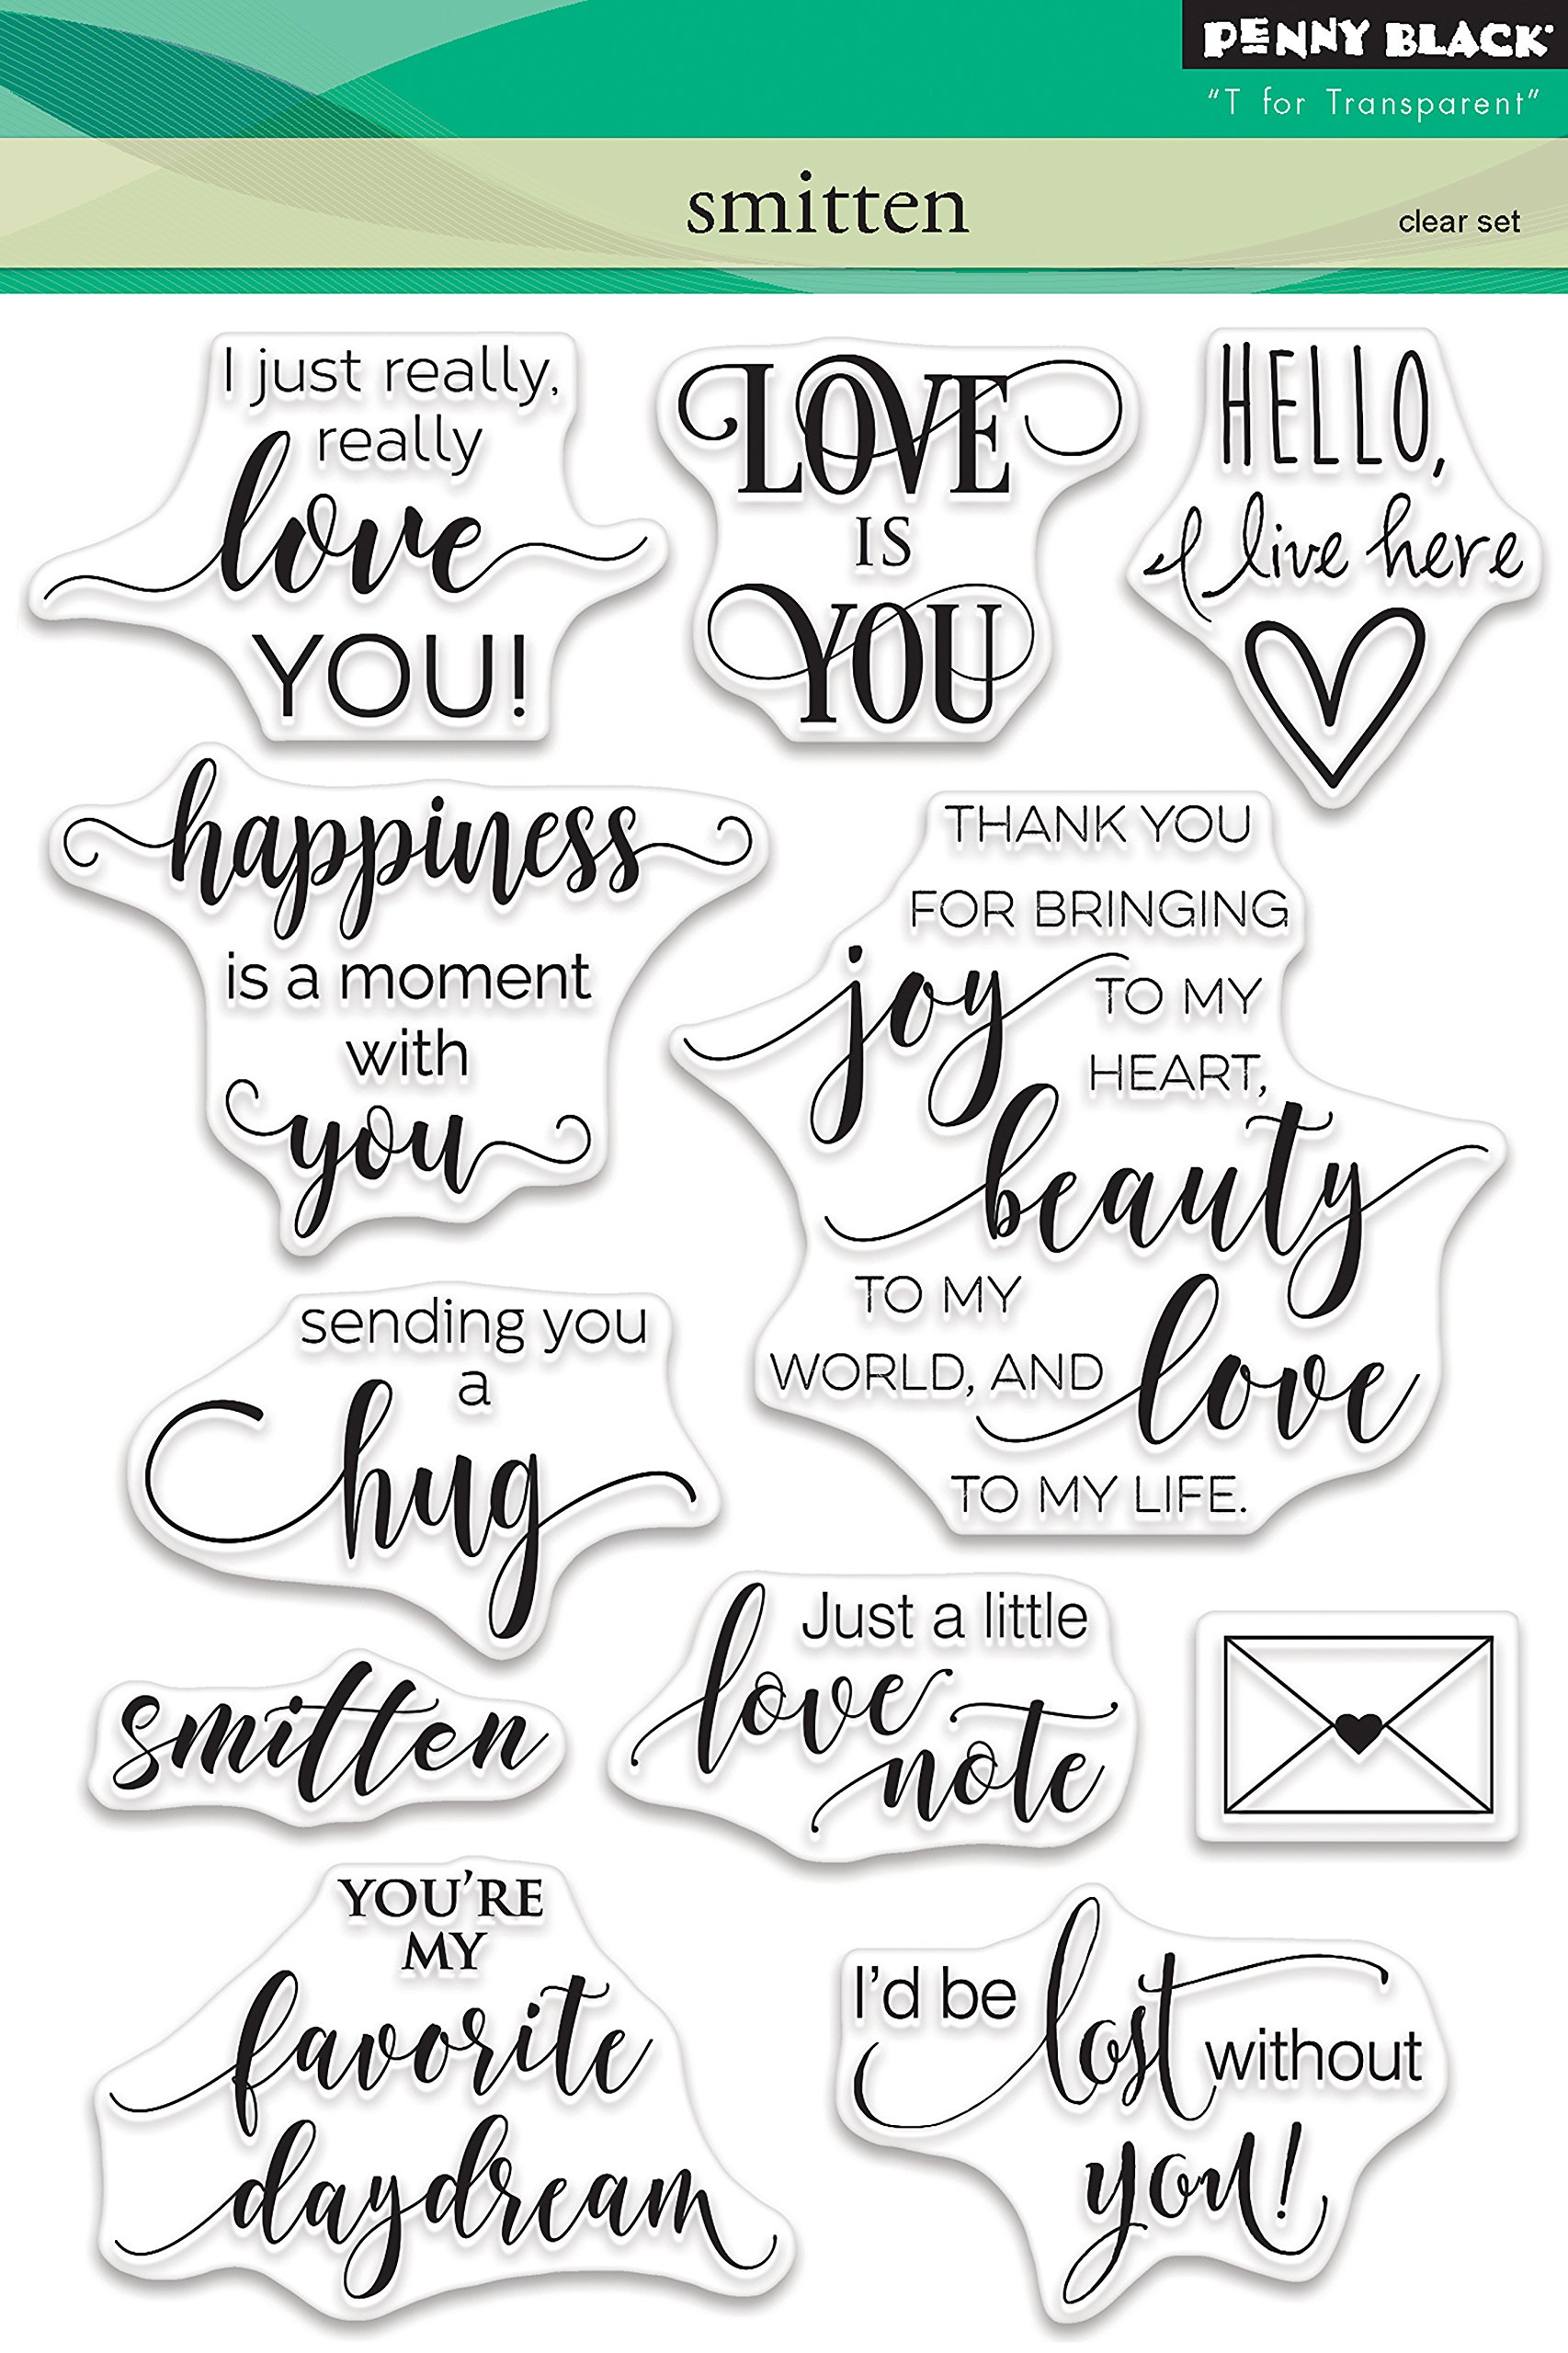 PENNY BLACK
"T for Transparent"
smitten
clear set
I just really,
really
love
YOU!
LOVE
IS
YOU
HELLO,
I live here
happiness
is a moment
with
you
THANK YOU
FOR BRINGING
joy TO MY
HEART,
beauty
TO MY
WORLD, AND love
TO MY LIFE.
sending you
a
hug
smitten
Just a little
love
note
YOU'RE
MY
favorite
daydream
I'd be lost without
you!